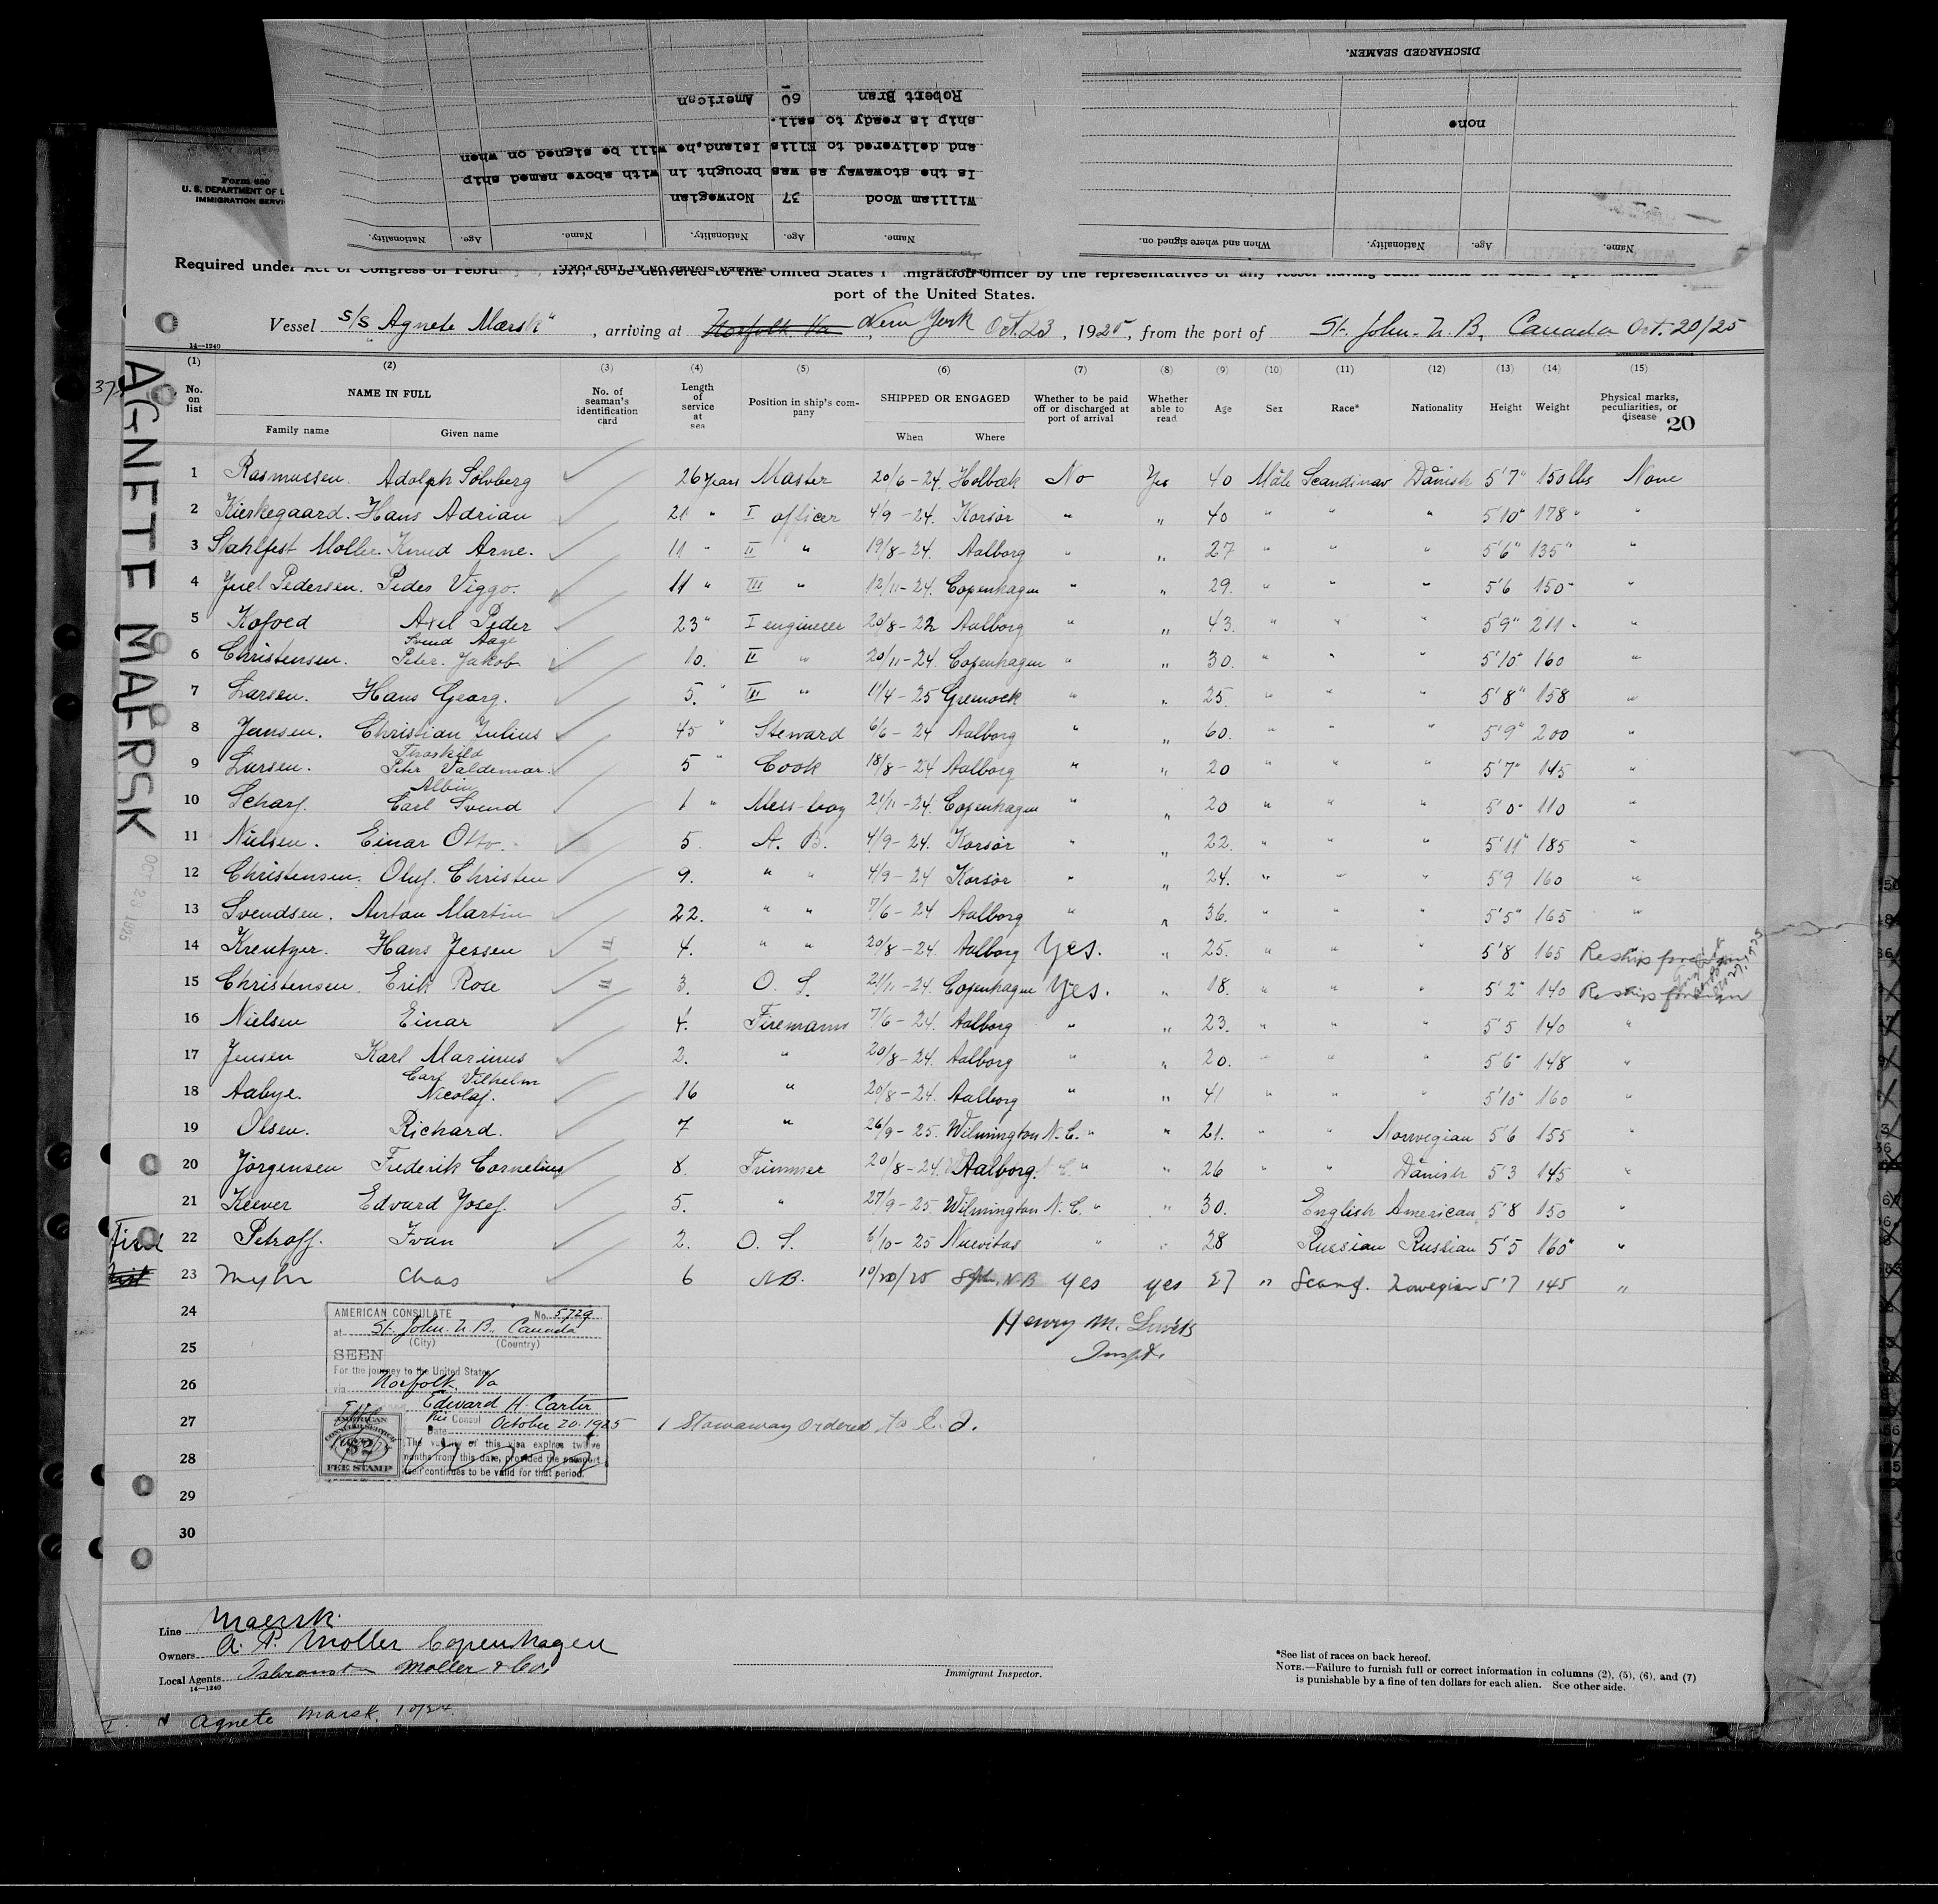 DISCHARGED SEAMEN.
Name. Age. Nationality. When and where signed on.
none
Name. Age. Nationality. Name. Age. Nationality.
William Wood 37 Norwegian
Is the stowaway as was brought in with above named ship
and delivered to Ellis Island, he will be signed on when
ship is ready to sail.
Robert Bran 60 American
Form 680
U. S. DEPARTMENT OF L
IMMIGRATION SERVI
Required under Act of Congress of Febru 1917, to be delivered to the United States
port of the United States.
Vessel S/S Agnete Mærsk" , arriving at Norfolk Va , New York Oct. 23 , 1925 , from the port of St. John. N. B, Canada Oct. 20/25
14—1240
AGNETE MAERSK
OCT 23 1925
(1) (2) (3) (4) (5) (6) (7) (8) (9) (10) (11) (12) (13) (14) (15)
No. on list NAME IN FULL No. of seaman's identification card Length of service at sea Position in ship's company SHIPPED OR ENGAGED Whether to be paid off or discharged at port of arrival Whether able to read Age Sex Race* Nationality Height Weight Physical marks, peculiarities, or disease 20
Family name Given name When Where
1 Rasmussen. Adolph Sölvberg 26 years Master 20/6 - 24. Holbæk No Yes 40 Male Scandinav Danish 5'7" 150 lbs None
2 Kierkegaard. Hans Adrian 21 " I officer 4/9 - 24. Korsör " " 40 " " " 5'10" 178 " "
3 Stahlfest Moller Knud Arne. 11 " II " 19/8 - 24. Aalborg " " 27 " " " 5'6" 135" "
4 Juel Pedersen. Peder Viggo. 11 " III " 12/11 - 24. Copenhagen " " 29. " " " 5'6 150 " "
5 Kofoed Axel Peder 23 " I engineer 20/8 - 22 Aalborg " " 43. " " " 5'9" 211 " "
6 Christensen. Svend Aage Peter. Jakob 10. II " 20/11 - 24. Copenhagen " " 30. " " " 5'10" 160 "
7 Larsen. Hans Georg. 5. " III " 11/4 - 25 Greenock " " 25. " " " 5'8" 158 "
8 Jensen. Christian Julius 45 " Steward 6/6 - 24 Aalborg " " 60. " " " 5'9" 200 "
9 Larsen. Thorkild Peter Valdemar. 5 " Cook 18/8 - 24 Aalborg " " 20 " " " 5'7" 145 "
10 Scharf. Albin Carl Svend 1 " Mess-boy 21/11 - 24. Copenhagen " " 20 " " " 5'0" 110 "
11 Nielsen. Einar Otto. 5 A. B. 4/9 - 24. Korsör " " 22. " " " 5'11" 185 "
12 Christensen. Oluf. Christen 9. " " 4/9 - 24 Korsör " " 24. " " " 5'9 160 "
13 Svendsen. Anton Martin 22. " " 7/6 - 24 Aalborg " " 36. " " " 5'5" 165 "
14 Kreutzer. Hans Jessen = 4. " " 20/8 - 24. Aalborg Yes. " 25. " " " 5'8 165 Reship foreign
15 Christensen. Erik Rose = 3. O. S. 21/11 - 24. Copenhagen Yes. " 18. " " " 5'2" 140 Reship foreign
16 Nielsen Einar 4. Firemann 7/6 - 24. Aalborg " " 23. " " " 5'5 140 "
17 Jensen Karl Marinus 2. " 20/8 - 24. Aalborg " " 20. " " " 5'6" 148 "
18 Aabye. Carl Vilhelm Nicolaj. 16 " 20/8 - 24. Aalborg " " 41 " " " 5'10" 160 "
19 Olsen. Richard. 7 " 26/9 - 25. Wilmington N. C. " " 21. " " Norwegian 5'6 155 "
20 Jörgensen Frederik Cornelius 8. Trimmer 20/8 - 24. Aalborg. " " 26 " " Danish 5'3 145 "
21 Keever Edvard Josef. 5. " 27/9 - 25. Wilmington N. C. " " 30. English American 5'8 150 "
22 Petroff. Ivan 2. O. S. 6/10 - 25 Nuevitas " " 28 Russian Russian 5'5 160" "
23 Chas 6 AB. 10/20/25 N. B yes yes 27 " Scand. Norwegian 5'7 145 "
24
25
26
27
28
29
30
Henry M.
Inspt.
AMERICAN CONSULATE No. 5729
at St. John. N. B., Canada
(City) (Country)
SEEN
For the journey to the United States
via Norfolk, Va
Edward H. Carter
Consul
Date October 20. 1925
The validity of this visa expires twelve
months from this date, provided the passport
itself continues to be valid for that period.
AMERICAN
CONSULAR SERVICE
$2
FEE STAMP
1 Stowaway ordered to E. I.
Line Maersk.
Owners A. P. Moller Copenhagen
Local Agents Moller & Co.
14—1240
Immigrant Inspector.
*See list of races on back hereof.
NOTE.—Failure to furnish full or correct information in columns (2), (5), (6), and (7)
is punishable by a fine of ten dollars for each alien. See other side.
Agnete Marsk. 10/24.